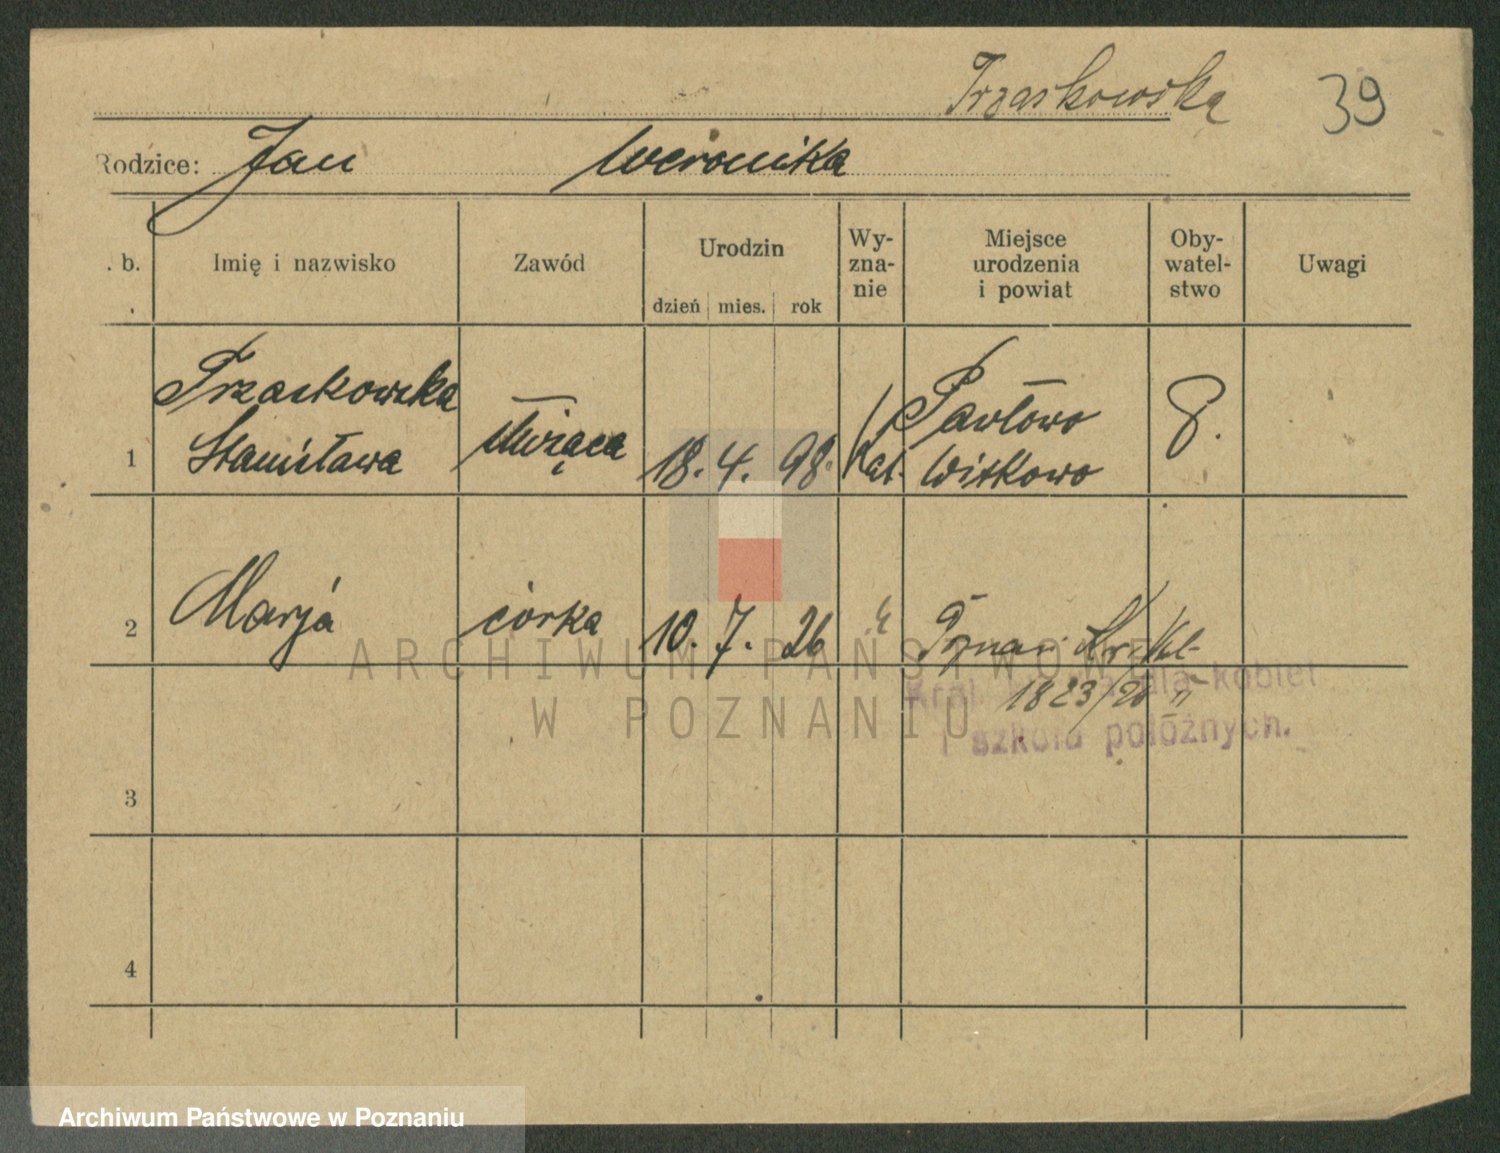 Trzaskowska 39
Rodzice: Jan Weronika
. b. Imię i nazwisko Zawód Urodzin dzień mies. rok Wy-
zna-
nie Miejsce
urodzenia
i powiat Oby-
watel-
stwo Uwagi
Trzaskowska Pawłowo
1 Stanisława służąca 18. 4. 98. Kat. Witkowo
2 Marja córka 10. 7. 26 " Poznań
1823/26
dla kobiet
i szkoła położnych.
3
4
ARCHIWUM PAŃSTWOWE
W POZNANIU
Archiwum Państwowe w Poznaniu